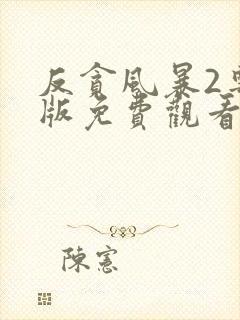 反貪風暴2粵
版免費觀看
陳憲